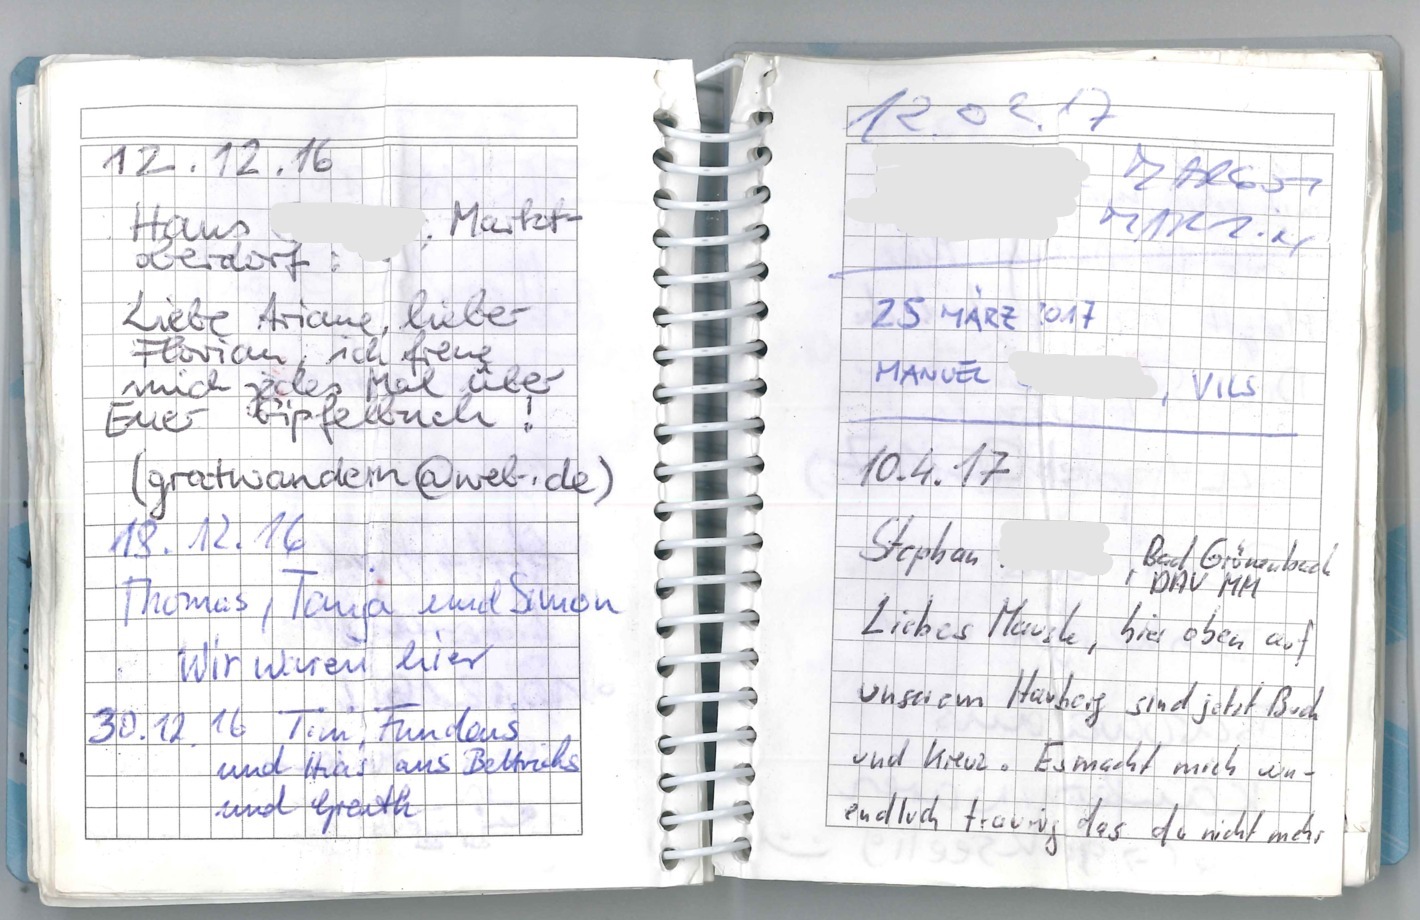 12.12.16
Hans , Markt-
oberdorf :
Liebe Ariane, lieber
Florian, ich freue
mich jedes Mal über
Euer Gipfelbuch !
(gratwandern@web.de)
18.12.16
Thomas, Tanja und Simon
Wir waren hier
30.12.16 Tim,
und Hias aus
und
12.02.17
MARGOT
MARTIN
25 MÄRZ 2017
MANUEL , VILS
10.4.17
Stephan , Bad Grönenbach
DAV MM
Liebes , hier oben auf
unserem sind jetzt Buch
und Kreuz. Es macht mich un-
endlich traurig das du nicht mehr